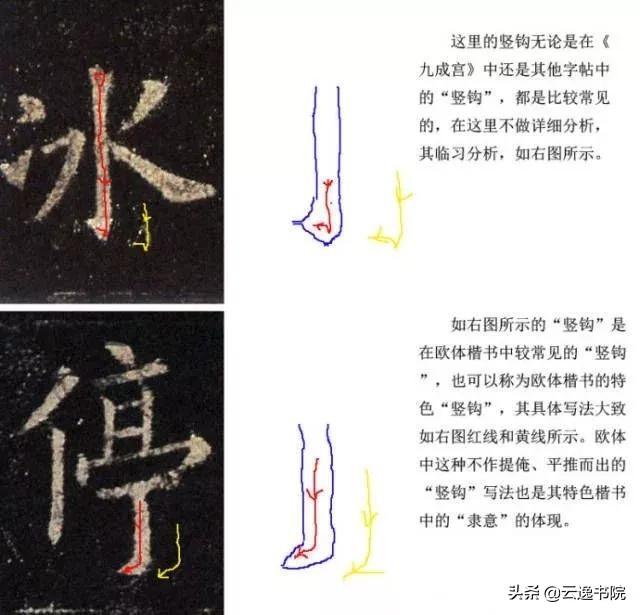 冰
这里的竖钩无论是在《
九成宫》中还是其他字帖中
的“竖钩”，都是比较常见
的，在这里不做详细分析，
其临习分析，如右图所示。
停
如右图所示的“竖钩”是
在欧体楷书中较常见的“竖钩
”，也可以称为欧体楷书的特
色“竖钩”，其具体写法大致
如右图红线和黄线所示。欧体
中这种不作提俺、平推而出的
“竖钩”写法也是其特色楷书
中的“隶意”的体现。
头条 @云逸书院